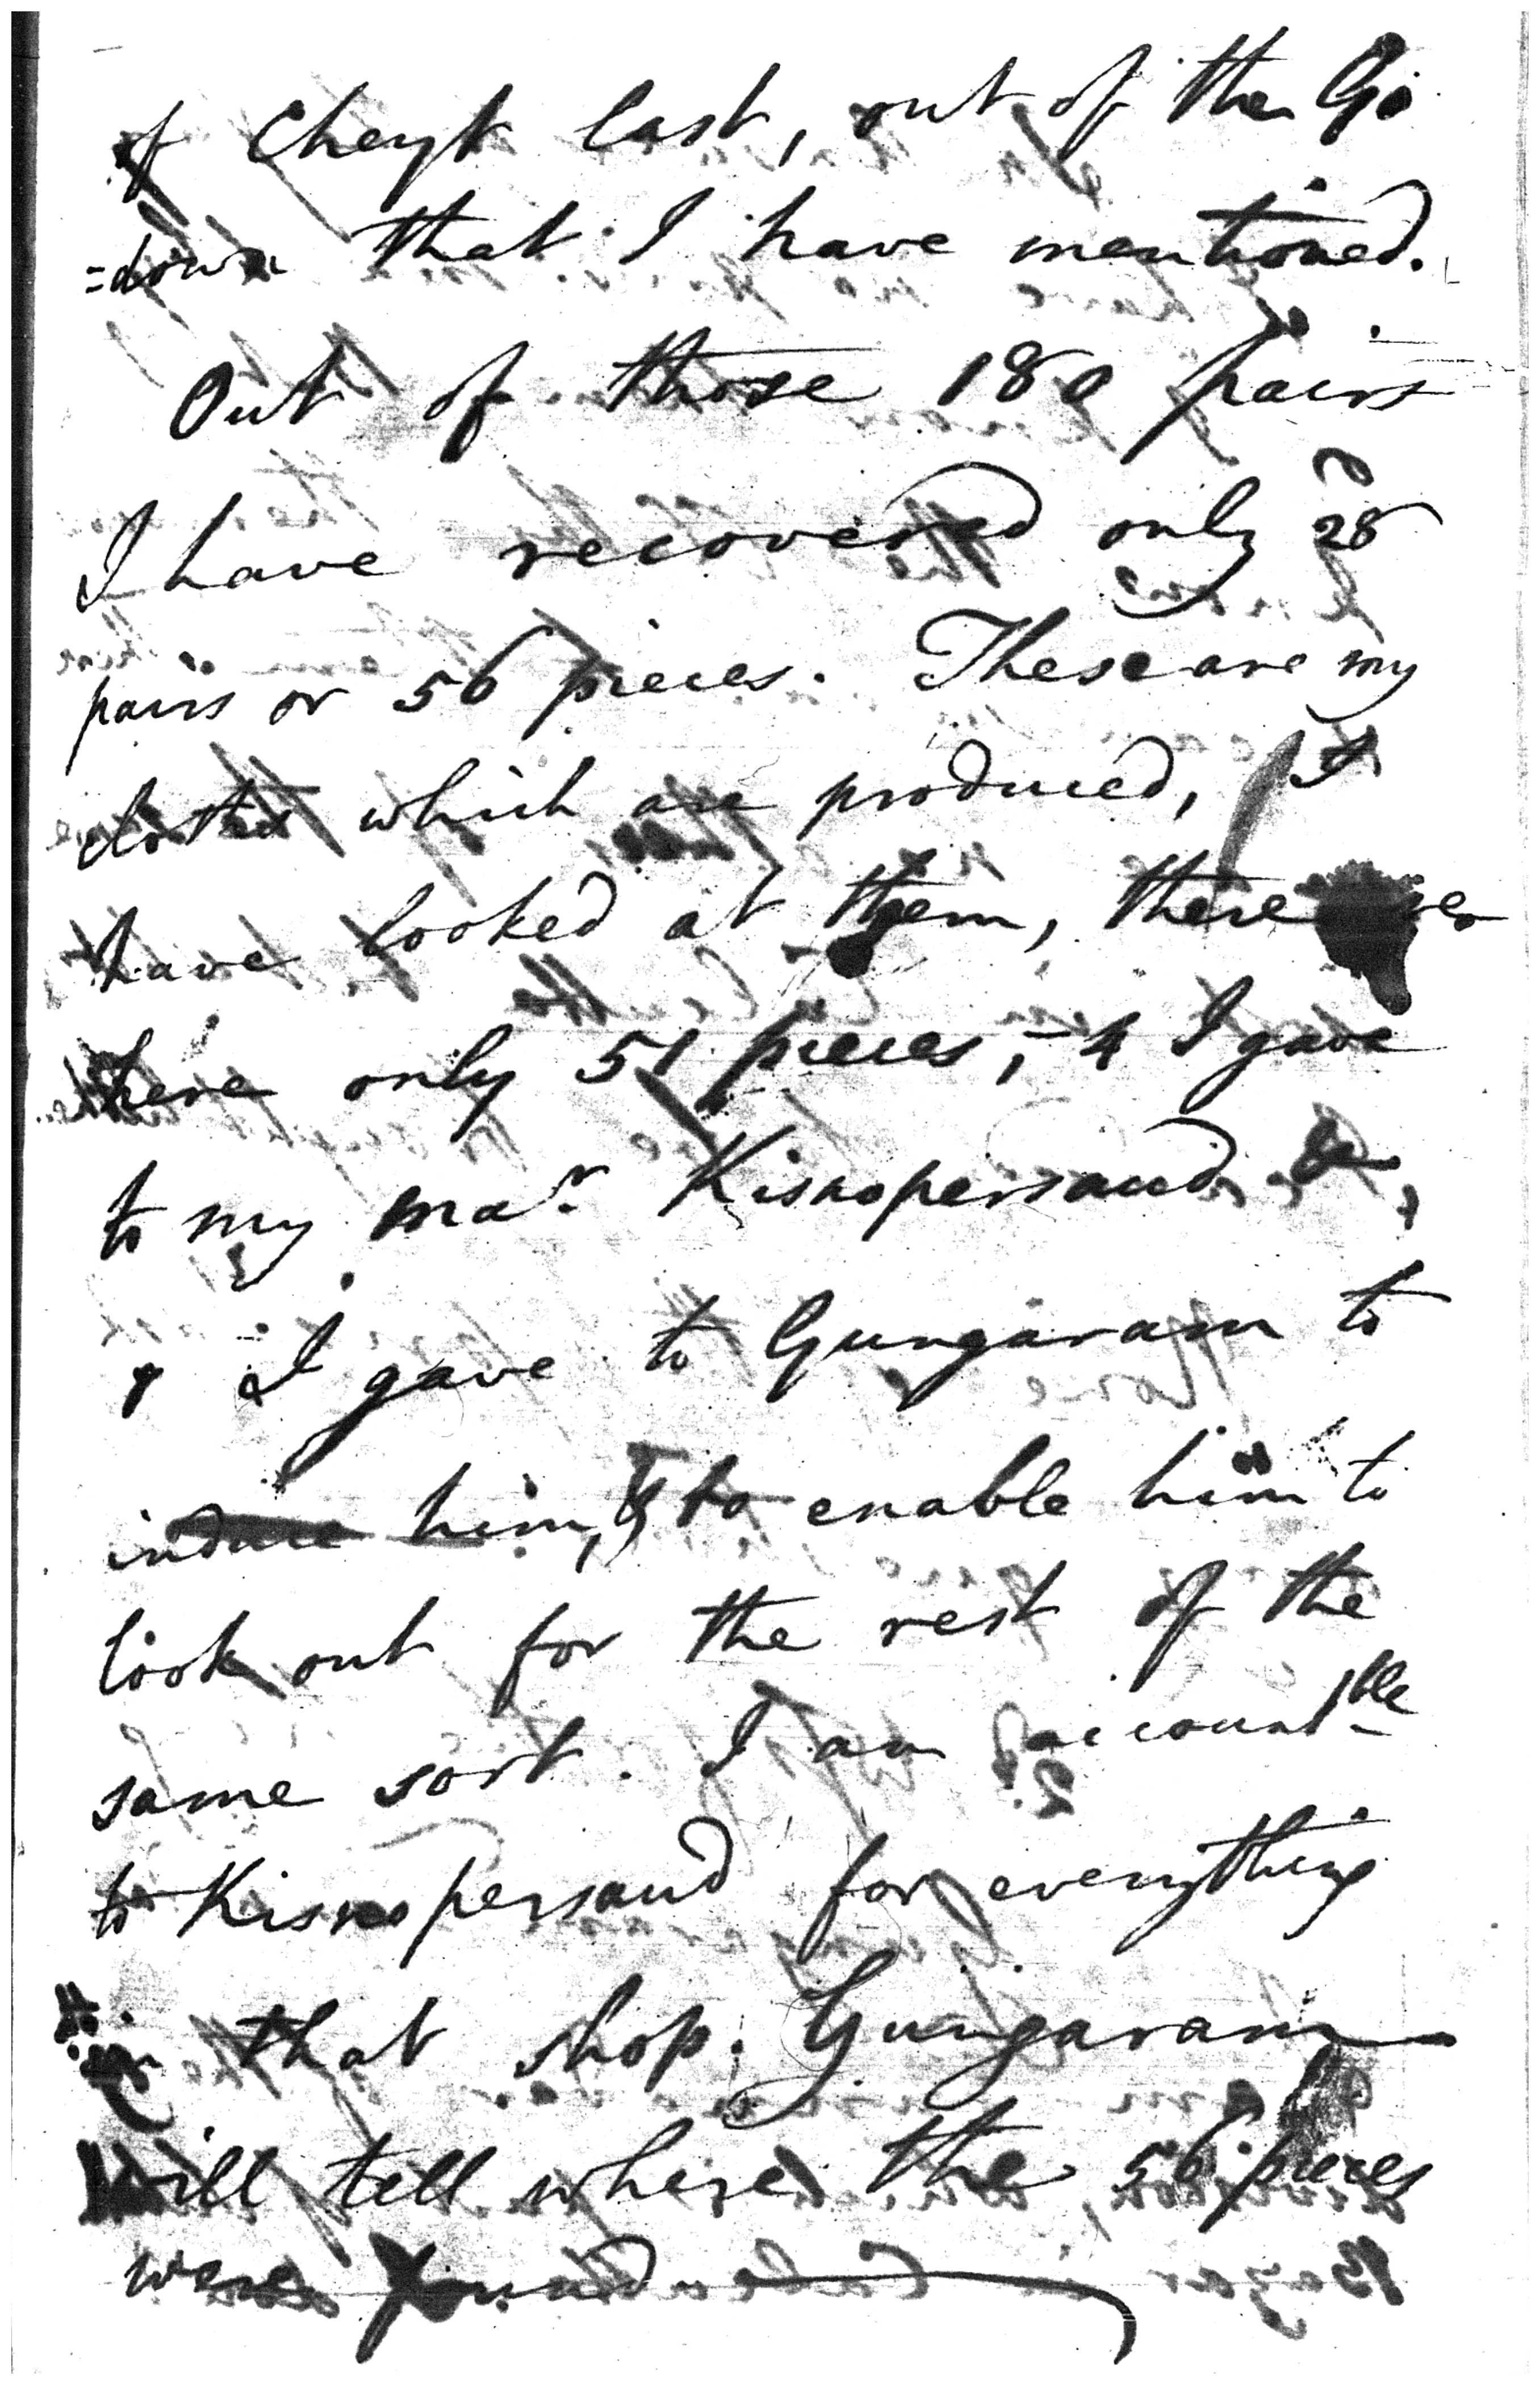 of Cheyt last, out of the Go
=down that I have mentioned.
Out of those 180 pairs
I have recovered only 28
pairs or 56 pieces. These are my
clothes which are produced, I
have looked at them, there are
here only 51 pieces, - 4 I gave
to my mar. Kisnopersaud &
I gave to Gungaram to
induce him, & to enable him to
look out for the rest of the
same sort. I am accountble
to Kisnopersaud for everything
in that shop. Gungaram
will tell where the 56 pieces
were found